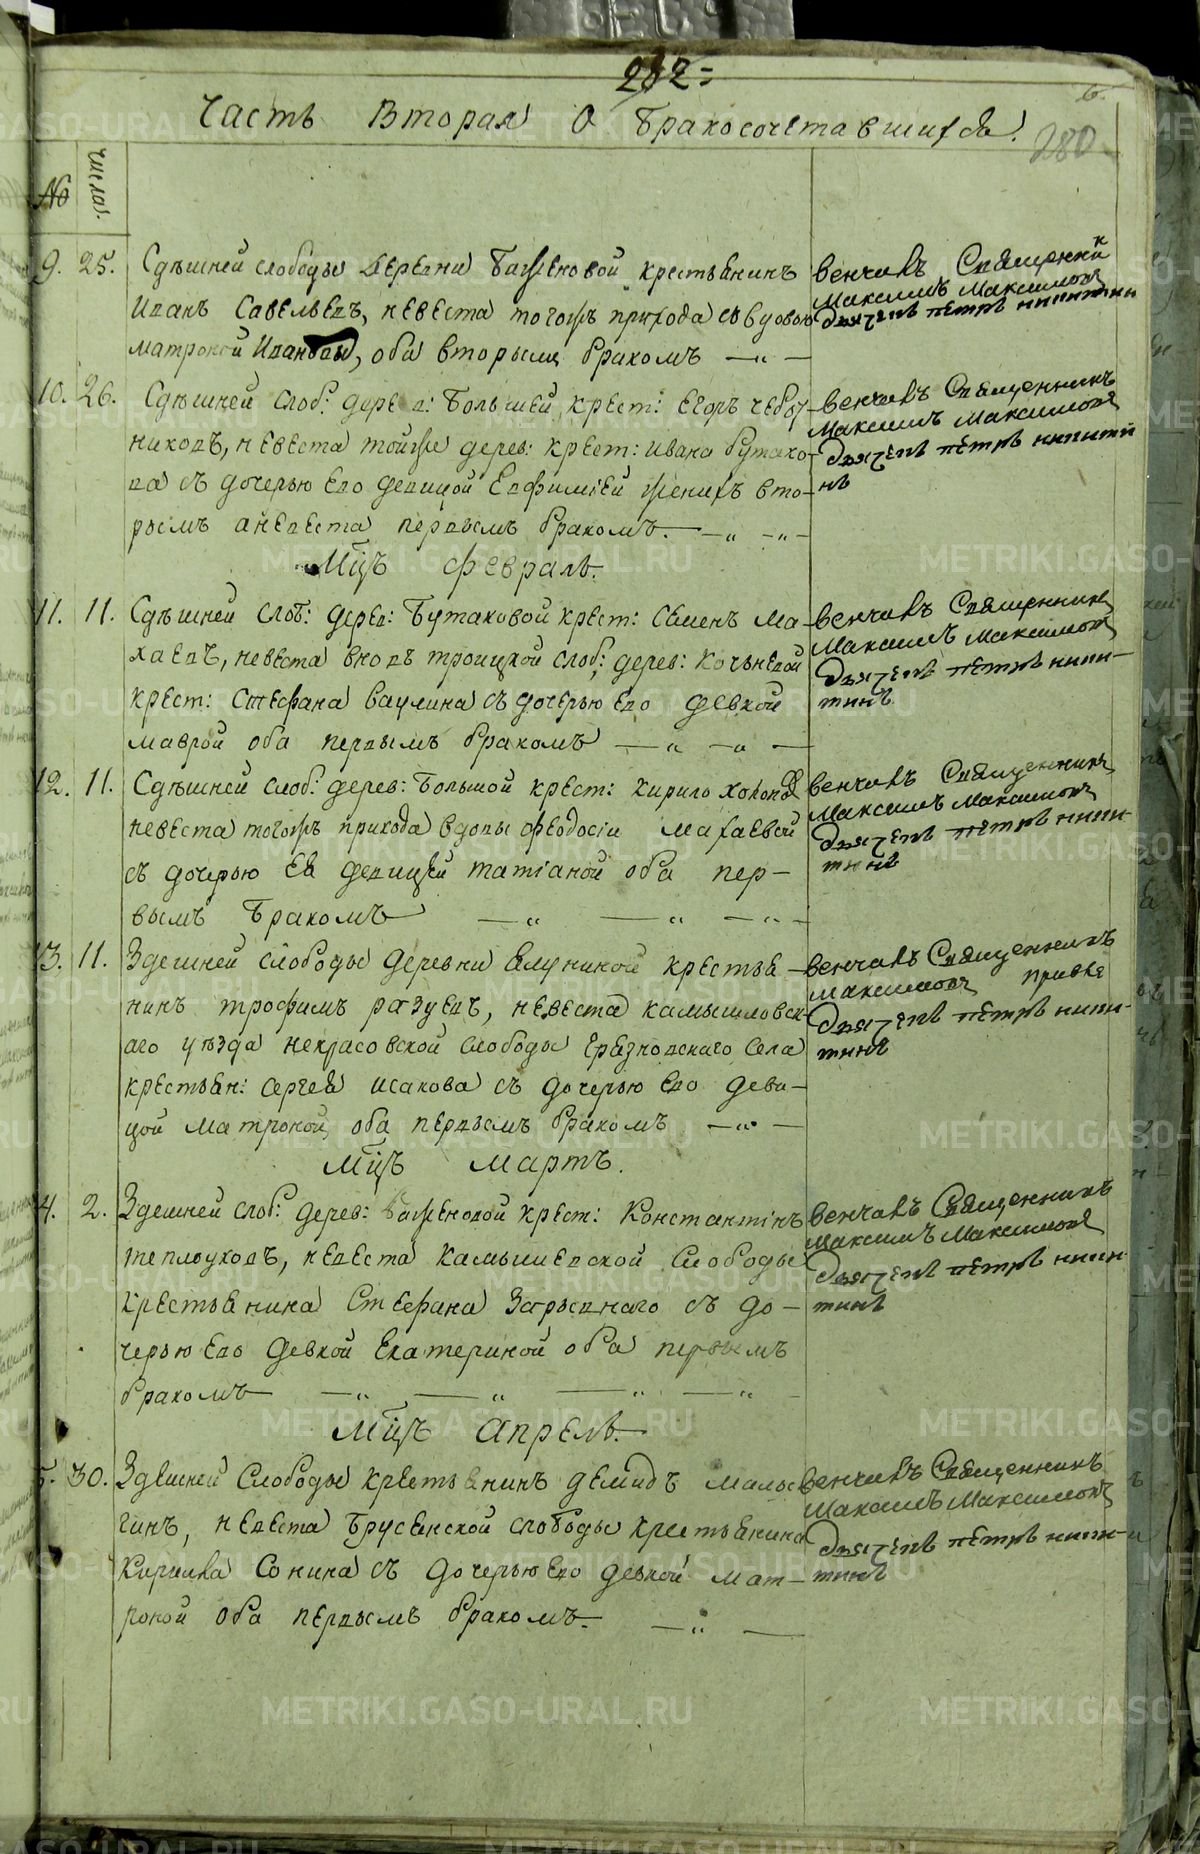 282=
6.
Часть Вторая О Бракосочетавшихся.
280
№ числа.
9. 25. Сдѣшней слободы деревни Баженовой крестьянинъ
Иванъ Савельевъ, невеста тогожъ прихода съ вдовою
матроной Ивановой, оба вторымъ бракомъ — „ —
венчавъ Священник
Максимъ Максимовъ
дьячекъ петръ никитин
10. 26. Сдѣшней слоб: дерев: Большей крест: Егоръ
никовъ, невеста тойже дерев: крест: Ивана бутако-
ва съ дочерью Ево девицой Евфимией женихъ вто-
рымъ а невеста первымъ бракомъ. — „ – „ –
венчавъ Священникъ
Максимъ Максимовъ
дьячекъ петръ никити
нъ
Мцъ февраль.
11. 11. Сдѣшней Слоб: дерев: Бутаковой крест: Семенъ Ма-
хаевъ, невеста вновь троицкой слоб; дерев: Кочьневой
крест: Стефана ваулина съ дочерью Ево девкой
маврой оба первымъ бракомъ — „ — „ —
венчавъ Священник
Максимъ Максимовъ
дьячекъ петръ ники-
тинъ
12. 11. Сдѣшней слоб: дерев: Большой крест: Кирило
невеста тогожъ прихода вдовы феодосіи Махаевой
съ дочерью Ея девицей татіаной оба пер-
вымъ Бракомъ — „ — „ — „ –
венчавъ Священникъ
Максимъ Максимовъ
дьячекъ петръ ники-
тинъ
13. 11. Здешней слободы деревни Елуниной крестья-
нинъ трофимъ разуевъ, невеста камышловск-
аго уѣзда некрасовской слободы грязновскаго села
крестьян: Сергея исакова съ дочерью Ево деви-
цой матроной, оба первымъ бракомъ — „ —
венчавъ Священникъ
Максимовъ
дьячекъ петръ ники-
тинъ
Мцъ мартъ.
4. 2. Здешней слоб: дерев: Баженовой крест: Константінъ
теплоуховъ, невеста Камышевской Слободы
крестьянина Стефана съ до-
черью Ево девкой Екатериной оба первымъ
бракомъ — „ — „ — „ — „ –
венчавъ Священникъ
Максимъ Максимовъ
дьячекъ петръ ники-
тинъ
Мцъ Апрель.
5. 30. Здешней Слободы крестьянинъ демидъ малы
гинъ, невеста Брусенской слободы крестьянина
Кирилла Сонина съ дочерью Ево девкой мат-
роной оба первымъ бракомъ. — „ —
венчавъ Священникъ
Максимъ Максимовъ
дьячекъ петръ ники-
тинъ
METRIKI.GASO-URAL.RU